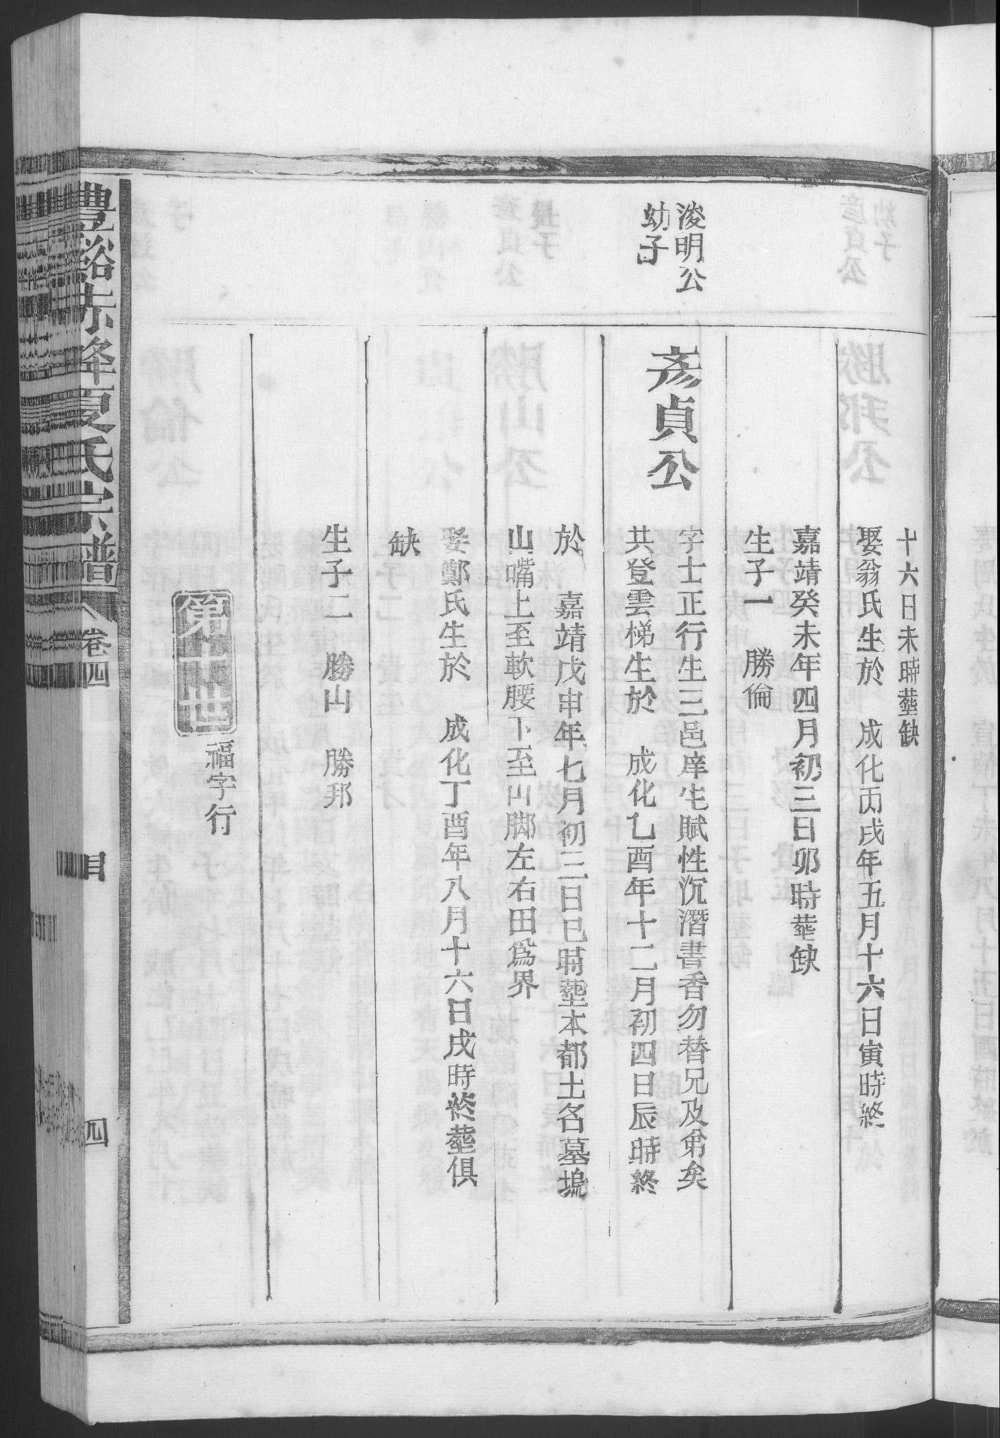 十六日未時塟缺
娶翁氏生於　成化丙戌年五月十六日寅時終
嘉靖癸未年四月初三日卯時塟缺
生子一　勝倫
浚明公
幼子
彥貞公
字士正行生三邑庠生賦性沉潛書香勿替兄及弟矣
共登雲梯生於　成化乙酉年十二月初四日辰時終
於　嘉靖戊申年七月初三日巳時塟本都土名墓塢
山嘴上至軟腰下至山脚左右田爲界
娶鄭氏生於　成化丁酉年八月十六日戌時終塟俱
缺
生子二　勝山　勝邦
福字行
豊谿赤降夏氏宗譜
卷四
四